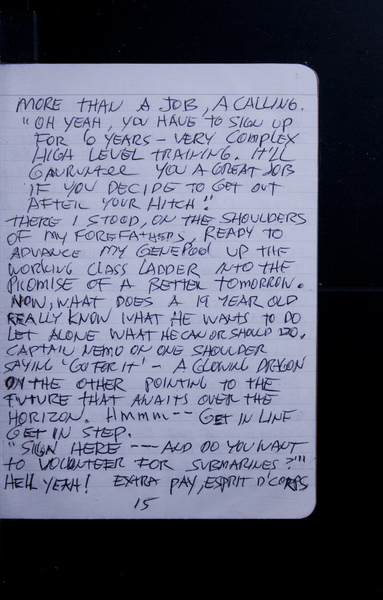 MORE THAN A JOB, A CALLING.
"OH YEAH, YOU HAVE TO SIGN UP
FOR 6 YEARS - VERY COMPLEX
HIGH LEVEL TRAINING. IT'LL
GAURUNTEE YOU A GREAT JOB
IF YOU DECIDE TO GET OUT
AFTER YOUR HITCH"
THERE I STOOD, ON THE SHOULDERS
OF MY FOREFATHERS, READY TO
ADVANCE MY GENEPOOL UP THE
WORKING CLASS LADDER INTO THE
PROMISE OF A BETTER TOMORROW.
NOW, WHAT DOES A 19 YEAR OLD
REALLY KNOW WHAT HE WANTS TO DO
LET ALONE WHAT HE CAN OR SHOULD DO.
CAPTAIN NEMO ON ONE SHOULDER
SAYING 'GO FOR IT' - A GLOWING DRAGON
ON THE OTHER POINTING TO THE
FUTURE THAT AWAITS OVER THE
HORIZON. HMMMM -- GET IN LINE
GET IN STEP.
"SIGN HERE --- AND DO YOU WANT
TO VOLUNTEER FOR SUBMARINES?"
HELL YEAH! EXTRA PAY, ESPRIT D'CORPS
15